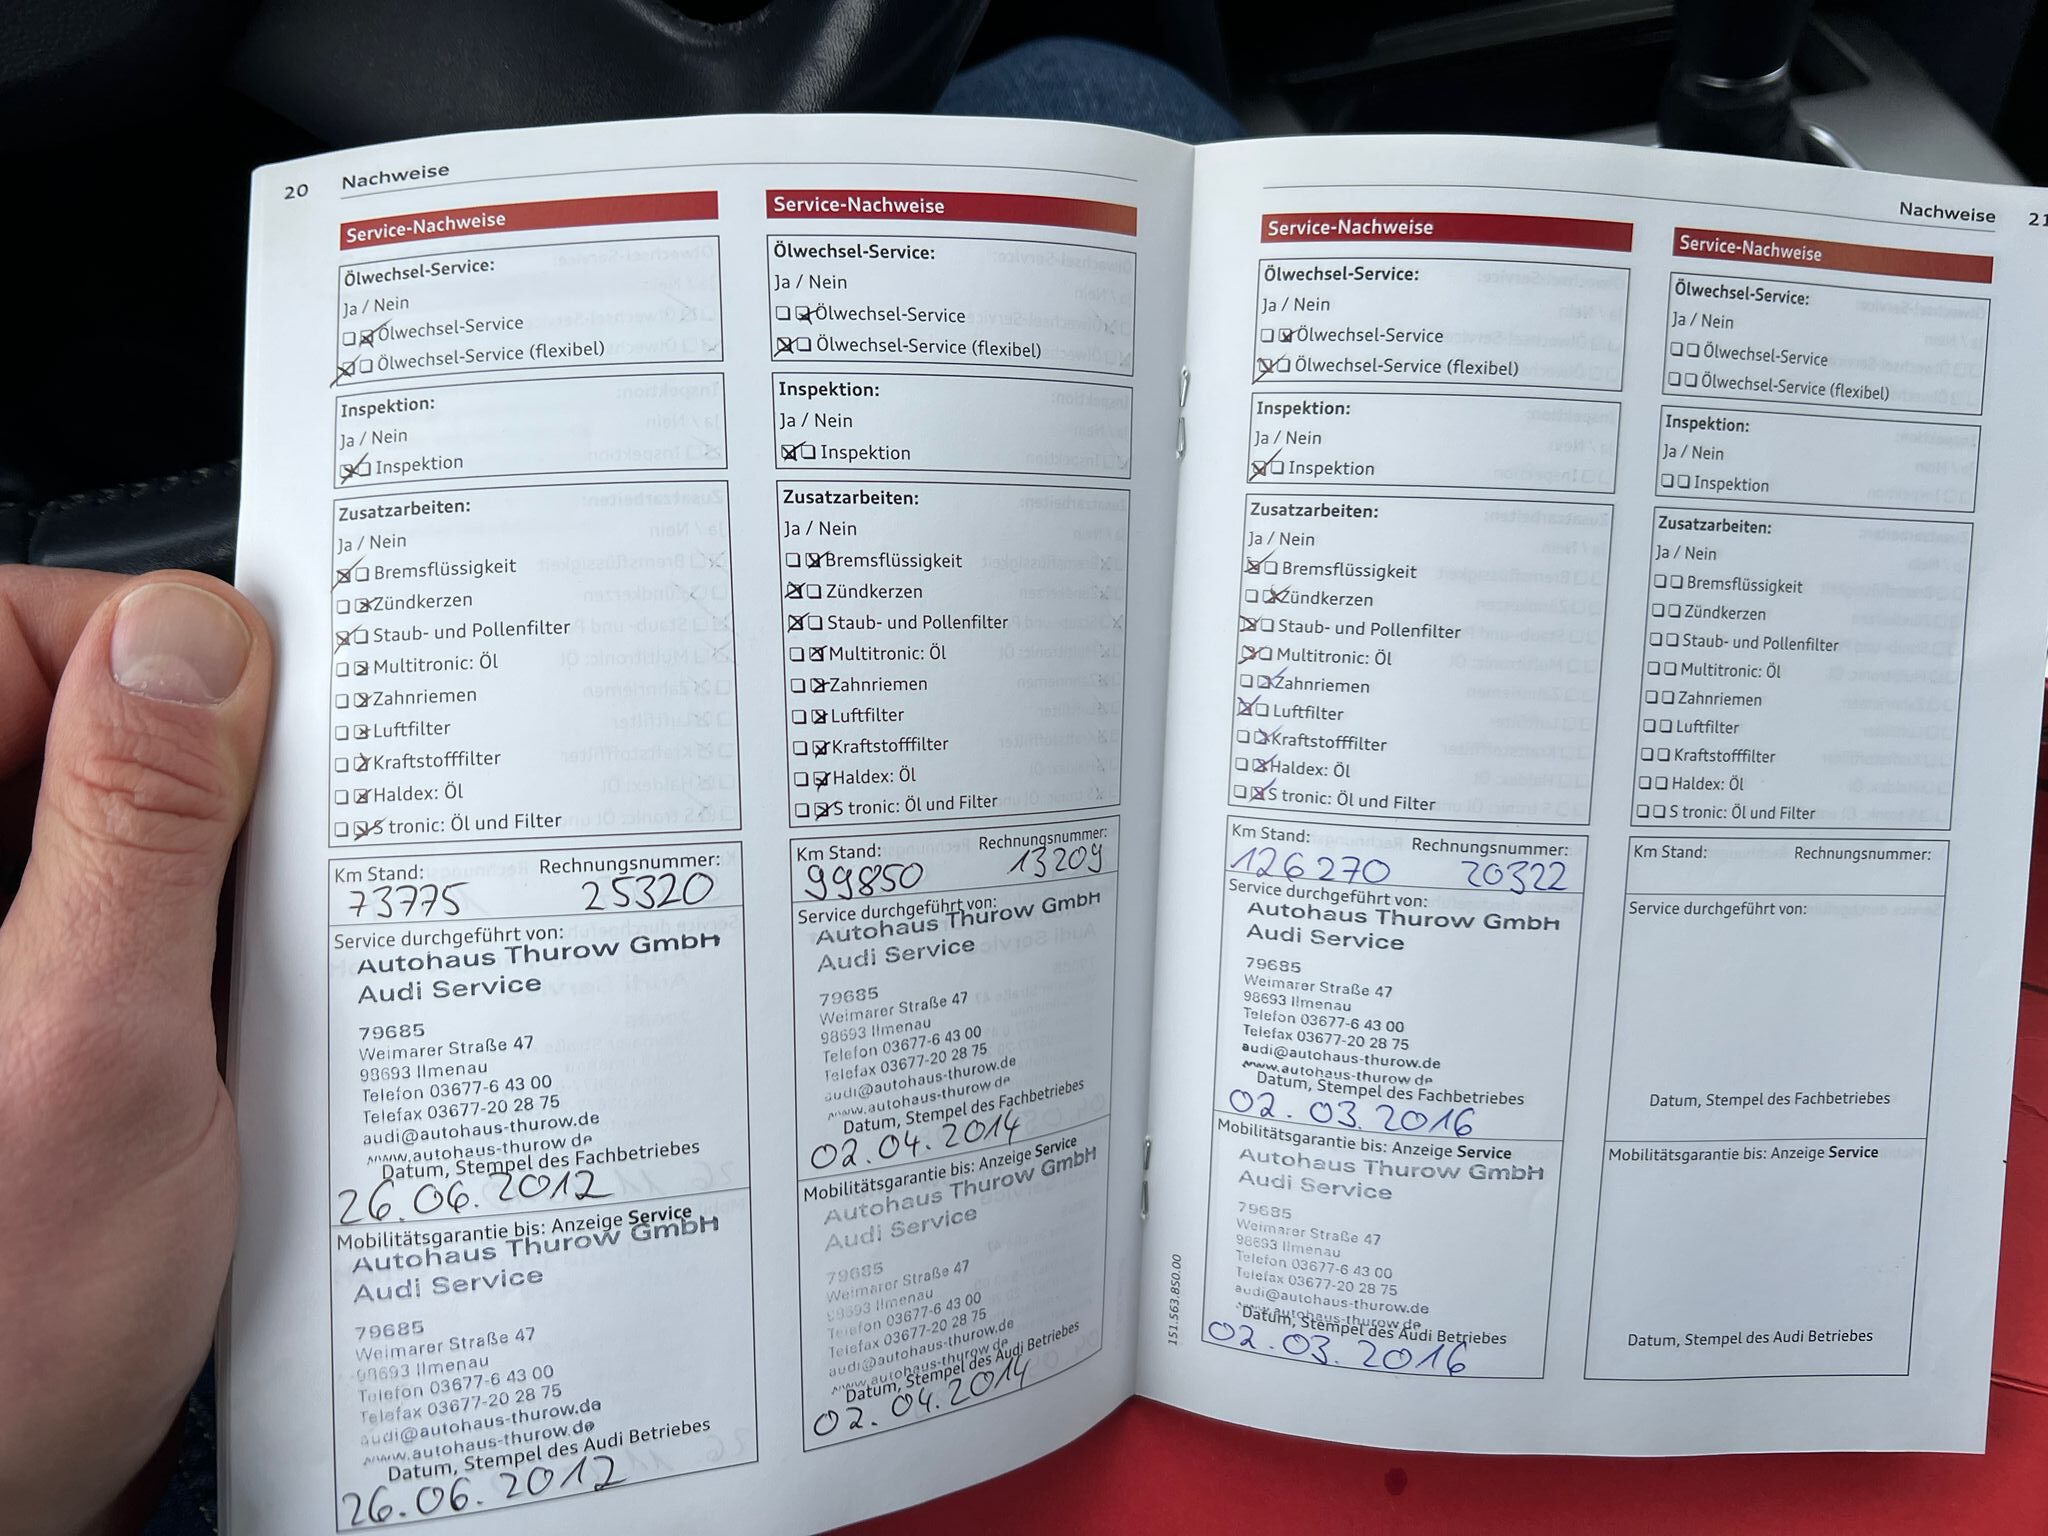 20 Nachweise
Service-Nachweise
Ölwechsel-Service:
Ja / Nein
Ölwechsel-Service
Ölwechsel-Service (flexibel)
Inspektion:
Ja / Nein
Inspektion
Zusatzarbeiten:
Ja / Nein
Bremsflüssigkeit
Zündkerzen
Staub- und Pollenfilter
Multitronic: Öl
Zahnriemen
Luftfilter
Kraftstofffilter
Haldex: Öl
S tronic: Öl und Filter
Km Stand: Rechnungsnummer:
73775 25320
Service durchgeführt von:
Autohaus Thurow GmbH
Audi Service
79685
Weimarer Straße 47
98693 Ilmenau
Telefon 03677-6 43 00
Telefax 03677-20 28 75
audi@autohaus-thurow.de
www.autohaus-thurow.de
Datum, Stempel des Fachbetriebes
26.06.2012
Mobilitätsgarantie bis: Anzeige Service
Autohaus Thurow GmbH
Audi Service
79685
Weimarer Straße 47
98693 Ilmenau
Telefon 03677-6 43 00
Telefax 03677-20 28 75
audi@autohaus-thurow.de
www.autohaus-thurow.de
Datum, Stempel des Audi Betriebes
26.06.2012
Service-Nachweise
Ölwechsel-Service:
Ja / Nein
Ölwechsel-Service
Ölwechsel-Service (flexibel)
Inspektion:
Ja / Nein
Inspektion
Zusatzarbeiten:
Ja / Nein
Bremsflüssigkeit
Zündkerzen
Staub- und Pollenfilter
Multitronic: Öl
Zahnriemen
Luftfilter
Kraftstofffilter
Haldex: Öl
S tronic: Öl und Filter
Km Stand: Rechnungsnummer:
99850 13209
Service durchgeführt von:
Autohaus Thurow GmbH
Audi Service
79685
Weimarer Straße 47
98693 Ilmenau
Telefon 03677-6 43 00
Telefax 03677-20 28 75
audi@autohaus-thurow.de
www.autohaus-thurow.de
Datum, Stempel des Fachbetriebes
02.04.2014
Mobilitätsgarantie bis: Anzeige Service
Autohaus Thurow GmbH
Audi Service
79685
Weimarer Straße 47
98693 Ilmenau
Telefon 03677-6 43 00
Telefax 03677-20 28 75
audi@autohaus-thurow.de
www.autohaus-thurow.de
Datum, Stempel des Audi Betriebes
02.04.2014
Nachweise 21
Service-Nachweise
Ölwechsel-Service:
Ja / Nein
Ölwechsel-Service
Ölwechsel-Service (flexibel)
Inspektion:
Ja / Nein
Inspektion
Zusatzarbeiten:
Ja / Nein
Bremsflüssigkeit
Zündkerzen
Staub- und Pollenfilter
Multitronic: Öl
Zahnriemen
Luftfilter
Kraftstofffilter
Haldex: Öl
S tronic: Öl und Filter
Km Stand: Rechnungsnummer:
126270 20322
Service durchgeführt von:
Autohaus Thurow GmbH
Audi Service
79685
Weimarer Straße 47
98693 Ilmenau
Telefon 03677-6 43 00
Telefax 03677-20 28 75
audi@autohaus-thurow.de
www.autohaus-thurow.de
Datum, Stempel des Fachbetriebes
02.03.2016
Mobilitätsgarantie bis: Anzeige Service
Autohaus Thurow GmbH
Audi Service
79685
Weimarer Straße 47
98693 Ilmenau
Telefon 03677-6 43 00
Telefax 03677-20 28 75
audi@autohaus-thurow.de
www.autohaus-thurow.de
Datum, Stempel des Audi Betriebes
02.03.2016
151.563.850.00
Service-Nachweise
Ölwechsel-Service:
Ja / Nein
Ölwechsel-Service
Ölwechsel-Service (flexibel)
Inspektion:
Ja / Nein
Inspektion
Zusatzarbeiten:
Ja / Nein
Bremsflüssigkeit
Zündkerzen
Staub- und Pollenfilter
Multitronic: Öl
Zahnriemen
Luftfilter
Kraftstofffilter
Haldex: Öl
S tronic: Öl und Filter
Km Stand: Rechnungsnummer:
Service durchgeführt von:
Datum, Stempel des Fachbetriebes
Mobilitätsgarantie bis: Anzeige Service
Datum, Stempel des Audi Betriebes